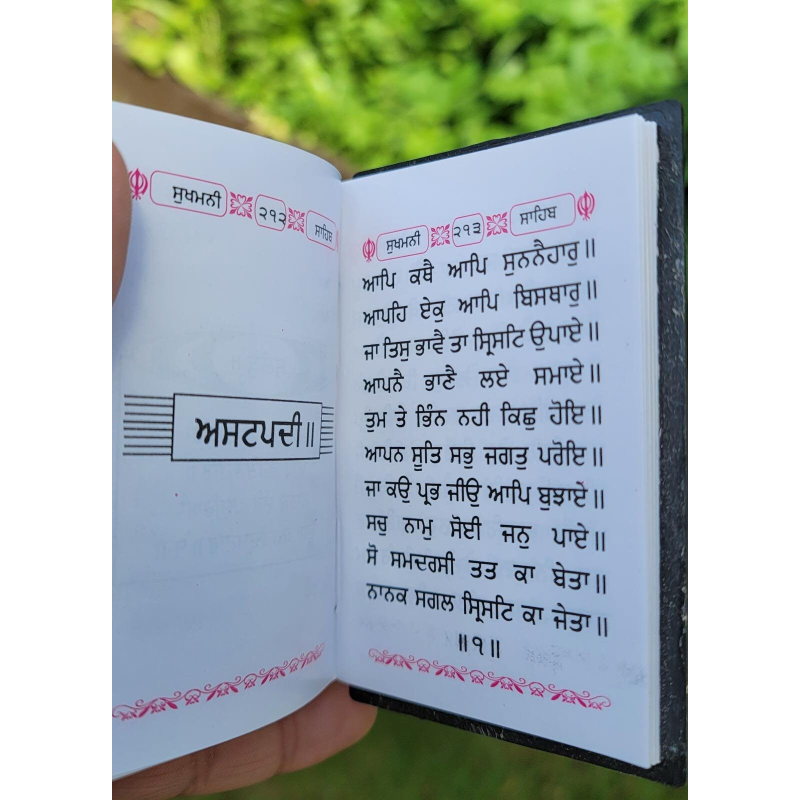 ਸੁਖਮਨੀ ੨੧੨ ਸਾਹਿਬ
ਅਸਟਪਦੀ॥
ਸੁਖਮਨੀ ੨੧੩ ਸਾਹਿਬ
ਆਪਿ ਕਥੈ ਆਪਿ ਸੁਨਨੈਹਾਰੁ॥
ਆਪਹਿ ਏਕੁ ਆਪਿ ਬਿਸਥਾਰੁ॥
ਜਾ ਤਿਸੁ ਭਾਵੈ ਤਾ ਸ੍ਰਿਸਟਿ ਉਪਾਏ॥
ਆਪਨੈ ਭਾਣੈ ਲਏ ਸਮਾਏ॥
ਤੁਮ ਤੇ ਭਿੰਨ ਨਹੀ ਕਿਛੁ ਹੋਇ॥
ਆਪਨ ਸੂਤਿ ਸਭੁ ਜਗਤੁ ਪਰੋਇ॥
ਜਾ ਕਉ ਪ੍ਰਭ ਜੀਉ ਆਪਿ ਬੁਝਾਏ॥
ਸਚੁ ਨਾਮੁ ਸੋਈ ਜਨੁ ਪਾਏ॥
ਸੋ ਸਮਦਰਸੀ ਤਤ ਕਾ ਬੇਤਾ॥
ਨਾਨਕ ਸਗਲ ਸ੍ਰਿਸਟਿ ਕਾ ਜੇਤਾ॥
॥੧॥